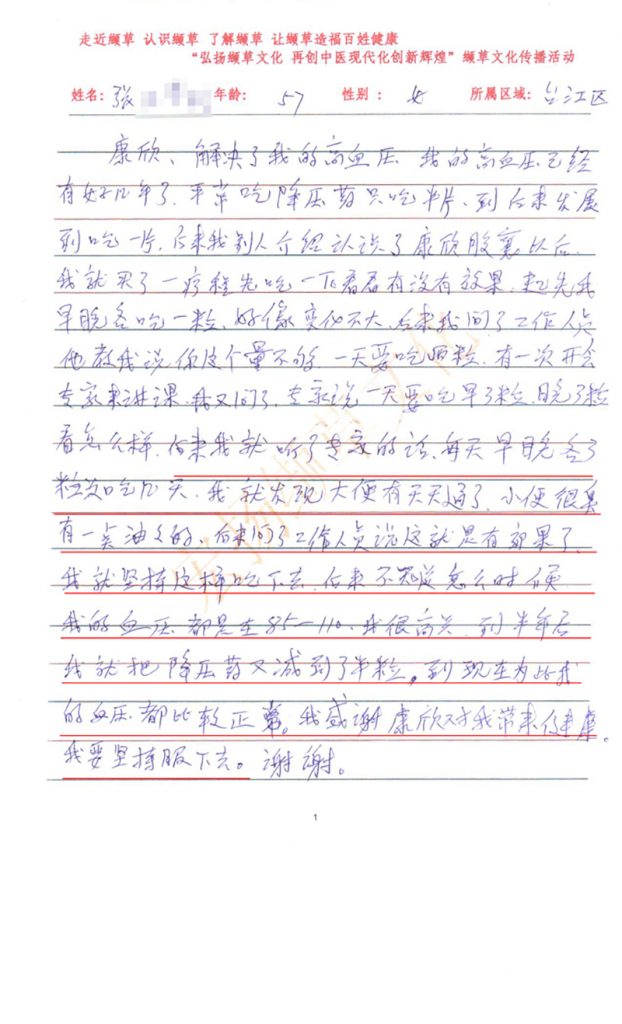 走近缬草 认识缬草 了解缬草 让缬草造福百姓健康
“弘扬缬草文化 再创中医现代化创新辉煌” 缬草文化传播活动
姓名: 张 年龄: 57 性别: 女 所属区域: 台江区
康欣、解决了我的高血压 我的高血压已经
有好几年了. 平常吃降压药只吃半片、到后来发展
到吃一片. 后来我别人介绍认识了康欣胶囊以后.
我就买了一疗程先吃一下看看有没有效果. 起先我
早晚各吃一粒. 好像变化不大. 后来我问了工作人员
他教我说, 你这个量不够. 一天要吃四粒. 有一次开会
专家来讲课. 我又问了. 专家说一天要吃早了粒. 晚了粒
看怎么样. 后来我就听了专家的话. 每天早晚各了
粒 吃几天. 我就发现大便有天天通了. 小便很臭
有一点油久的. 后来问了工作人员说这就是有效果了.
我就坚持这样吃下去. 后来不知道怎么时候
我的血压都是在85—110. 我很高兴. 到半年后
我就把降压药又减到了半粒. 到现在为止我
的血压都比较正常。我感谢康欣对我带来健康.
我要坚持服下去。谢谢。
1
弘扬缬草文化